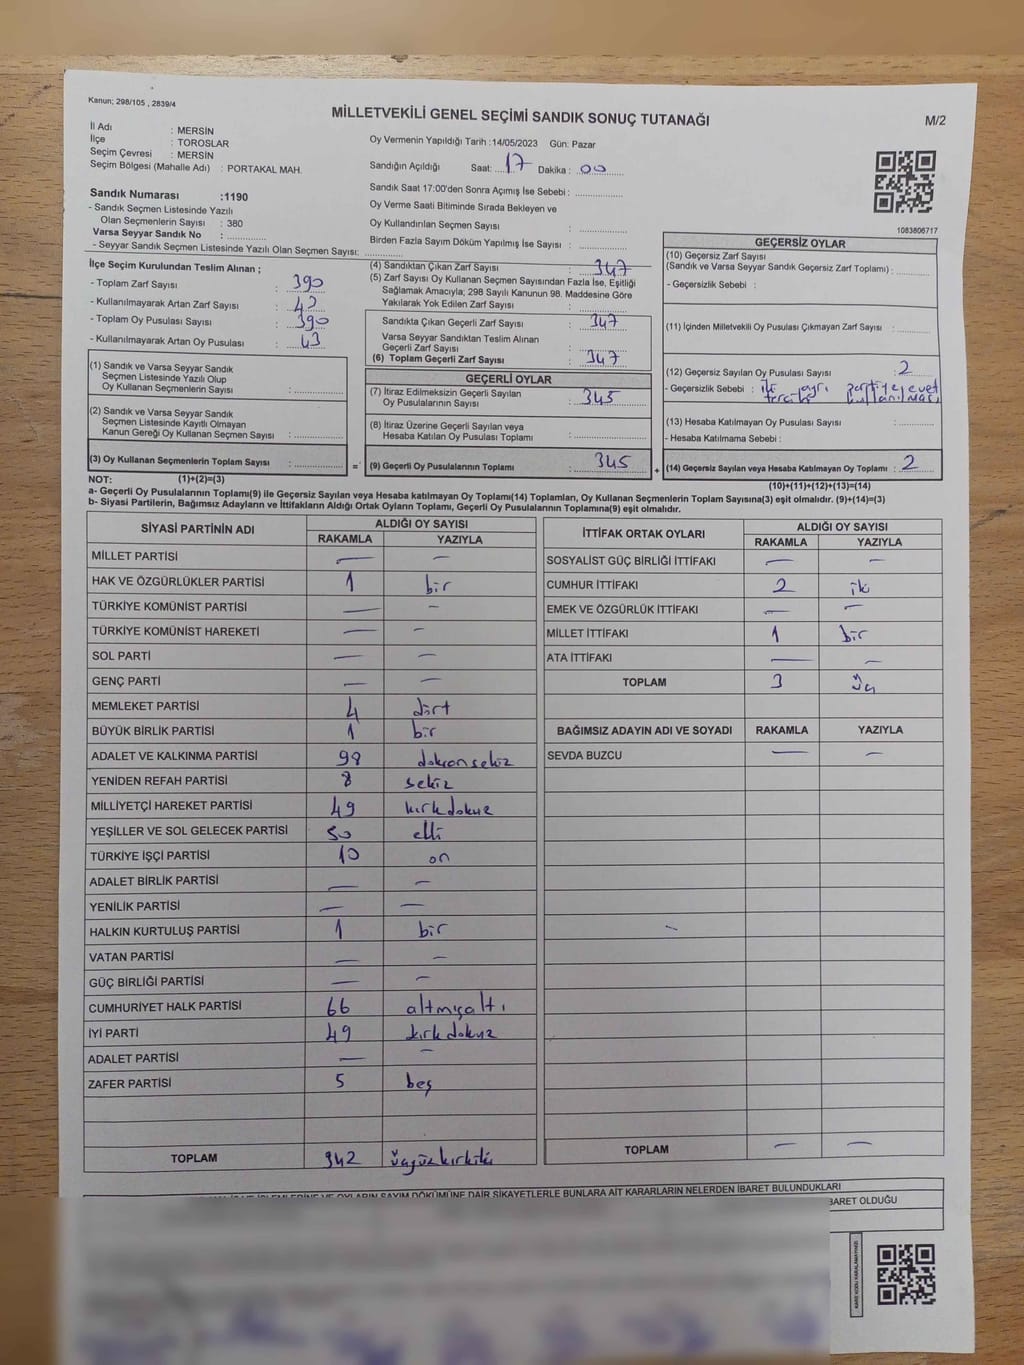 Kanun; 298/105 , 2839/4
MİLLETVEKİLİ GENEL SEÇİMİ SANDIK SONUÇ TUTANAĞI
M/2
İl Adı : MERSİN
İlçe : TOROSLAR
Seçim Çevresi : MERSİN
Seçim Bölgesi (Mahalle Adı) : PORTAKAL MAH.
Oy Vermenin Yapıldığı Tarih :14/05/2023 Gün: Pazar
Sandığın Açıldığı Saat: 17 Dakika : 00
Sandık Saat 17:00'den Sonra Açımış İse Sebebi :
Oy Verme Saati Bitiminde Sırada Bekleyen ve
Oy Kullandırılan Seçmen Sayısı :
Birden Fazla Sayım Döküm Yapılmış İse Sayısı :
1083806717
Sandık Numarası :1190
- Sandık Seçmen Listesinde Yazılı
Olan Seçmenlerin Sayısı : 380
Varsa Seyyar Sandık No :
- Seyyar Sandık Seçmen Listesinde Yazılı Olan Seçmen Sayısı:
İlçe Seçim Kurulundan Teslim Alınan ;
- Toplam Zarf Sayısı : 390
- Kullanılmayarak Artan Zarf Sayısı :
- Toplam Oy Pusulası Sayısı : 390
- Kullanılmayarak Artan Oy Pusulası : 43
(1) Sandık ve Varsa Seyyar Sandık
Seçmen Listesinde Yazılı Olup
Oy Kullanan Seçmenlerin Sayısı :
(2) Sandık ve Varsa Seyyar Sandık
Seçmen Listesinde Kayıtlı Olmayan
Kanun Gereği Oy Kullanan Seçmen Sayısı :
(3) Oy Kullanan Seçmenlerin Toplam Sayısı : =
(4) Sandıktan Çıkan Zarf Sayısı : 347
(5) Zarf Sayısı Oy Kullanan Seçmen Sayısından Fazla İse, Eşitliği
Sağlamak Amacıyla; 298 Sayılı Kanunun 98. Maddesine Göre
Yakılarak Yok Edilen Zarf Sayısı :
Sandıkta Çıkan Geçerli Zarf Sayısı : 347
Varsa Seyyar Sandıktan Teslim Alınan
Geçerli Zarf Sayısı :
(6) Toplam Geçerli Zarf Sayısı : 347
GEÇERLİ OYLAR
(7) İtiraz Edilmeksizin Geçerli Sayılan
Oy Pusulalarının Sayısı : 345
(8) İtiraz Üzerine Geçerli Sayılan veya
Hesaba Katılan Oy Pusulası Toplamı :
(9) Geçerli Oy Pusulalarının Toplamı : 345 +
GEÇERSİZ OYLAR
(10) Geçersiz Zarf Sayısı
(Sandık ve Varsa Seyyar Sandık Geçersiz Zarf Toplamı) :
- Geçersizlik Sebebi :
(11) İçinden Milletvekili Oy Pusulası Çıkmayan Zarf Sayısı :
(12) Geçersiz Sayılan Oy Pusulası Sayısı : 2
- Geçersizlik Sebebi : iki ayrı partiye evet
tercihi kullanılması
(13) Hesaba Katılmayan Oy Pusulası Sayısı :
- Hesaba Katılmama Sebebi :
(14) Geçersiz Sayılan veya Hesaba Katılmayan Oy Toplamı : 2
NOT: (1)+(2)=(3)
(10)+(11)+(12)+(13)=(14)
a- Geçerli Oy Pusulalarının Toplamı(9) ile Geçersiz Sayılan veya Hesaba katılmayan Oy Toplamı(14) Toplamları, Oy Kullanan Seçmenlerin Toplam Sayısına(3) eşit olmalıdır. (9)+(14)=(3)
b- Siyasi Partilerin, Bağımsız Adayların ve İttifakların Aldığı Ortak Oyların Toplamı, Geçerli Oy Pusulalarının Toplamına(9) eşit olmalıdır.
SİYASİ PARTİNİN ADI ALDIĞI OY SAYISI
RAKAMLA YAZIYLA
MİLLET PARTİSİ — —
HAK VE ÖZGÜRLÜKLER PARTİSİ 1 bir
TÜRKİYE KOMÜNİST PARTİSİ — —
TÜRKİYE KOMÜNİST HAREKETİ — —
SOL PARTİ — —
GENÇ PARTİ — —
MEMLEKET PARTİSİ 4 dört
BÜYÜK BİRLİK PARTİSİ 1 bir
ADALET VE KALKINMA PARTİSİ 98 doksansekiz
YENİDEN REFAH PARTİSİ 8 sekiz
MİLLİYETÇİ HAREKET PARTİSİ 49 kırkdokuz
YEŞİLLER VE SOL GELECEK PARTİSİ 50 elli
TÜRKİYE İŞÇİ PARTİSİ 10 on
ADALET BİRLİK PARTİSİ — —
YENİLİK PARTİSİ — —
HALKIN KURTULUŞ PARTİSİ 1 bir
VATAN PARTİSİ — —
GÜÇ BİRLİĞİ PARTİSİ — —
CUMHURİYET HALK PARTİSİ 66 altmışaltı
İYİ PARTİ 49 kırkdokuz
ADALET PARTİSİ — —
ZAFER PARTİSİ 5 beş
TOPLAM 342 üçyüzkırkiki
İTTİFAK ORTAK OYLARI ALDIĞI OY SAYISI
RAKAMLA YAZIYLA
SOSYALİST GÜÇ BİRLİĞİ İTTİFAKI — —
CUMHUR İTTİFAKI 2 iki
EMEK VE ÖZGÜRLÜK İTTİFAKI — —
MİLLET İTTİFAKI 1 bir
ATA İTTİFAKI — —
TOPLAM 3 üç
BAĞIMSIZ ADAYIN ADI VE SOYADI RAKAMLA YAZIYLA
SEVDA BUZCU — —
—
TOPLAM — —
OYLARIN SAYIM DÖKÜMÜNE DAİR ŞİKAYETLERLE BUNLARA AİT KARARLARIN NELERDEN İBARET BULUNDUKLARI
BARET OLDUĞU